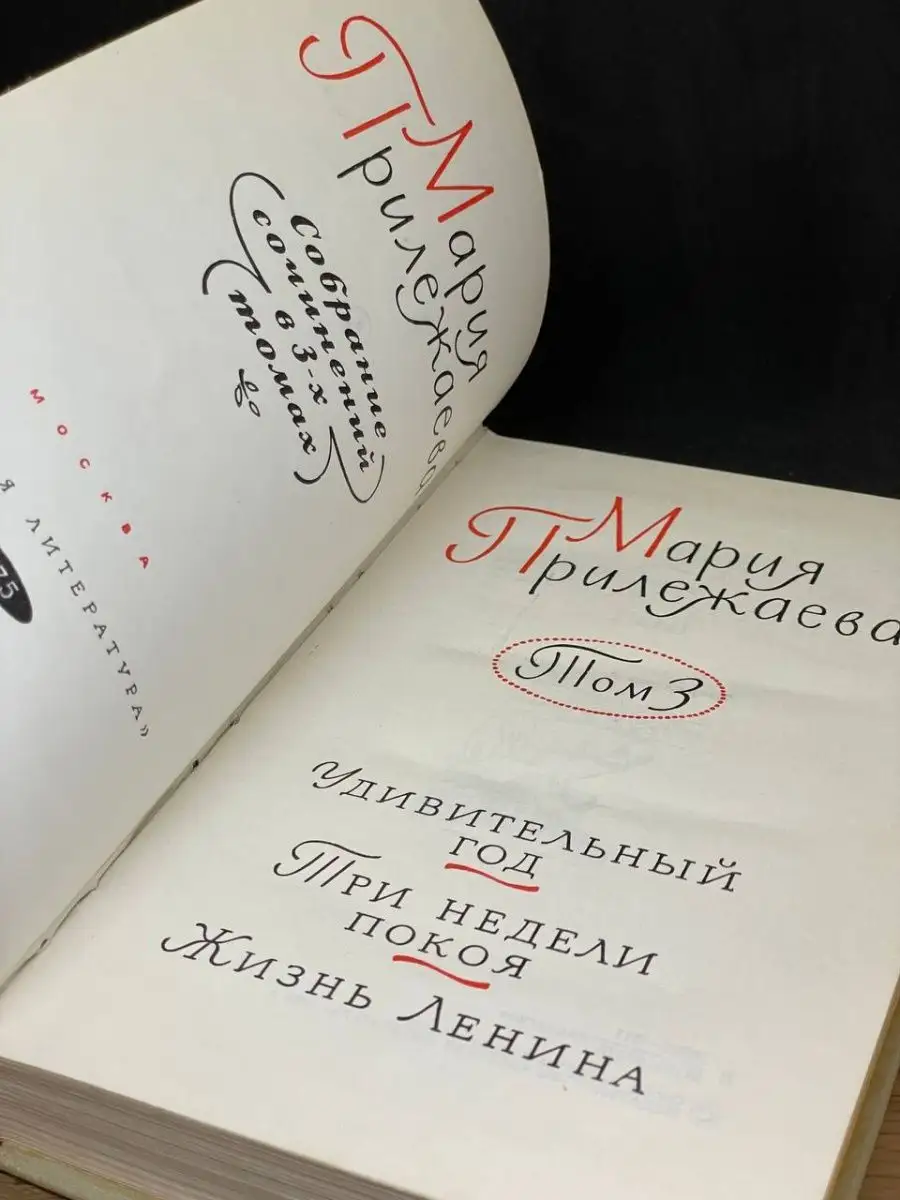 Мария
Прилежаева
Собрание
сочинений
в 3-х
томах
МОСКВА
Я ЛИТЕРАТУРА»
75
Мария
Прилежаева
Том 3
УДИВИТЕЛЬНЫЙ
ГОД
ТРИ НЕДЕЛИ
ПОКОЯ
ЖИЗНЬ ЛЕНИНА